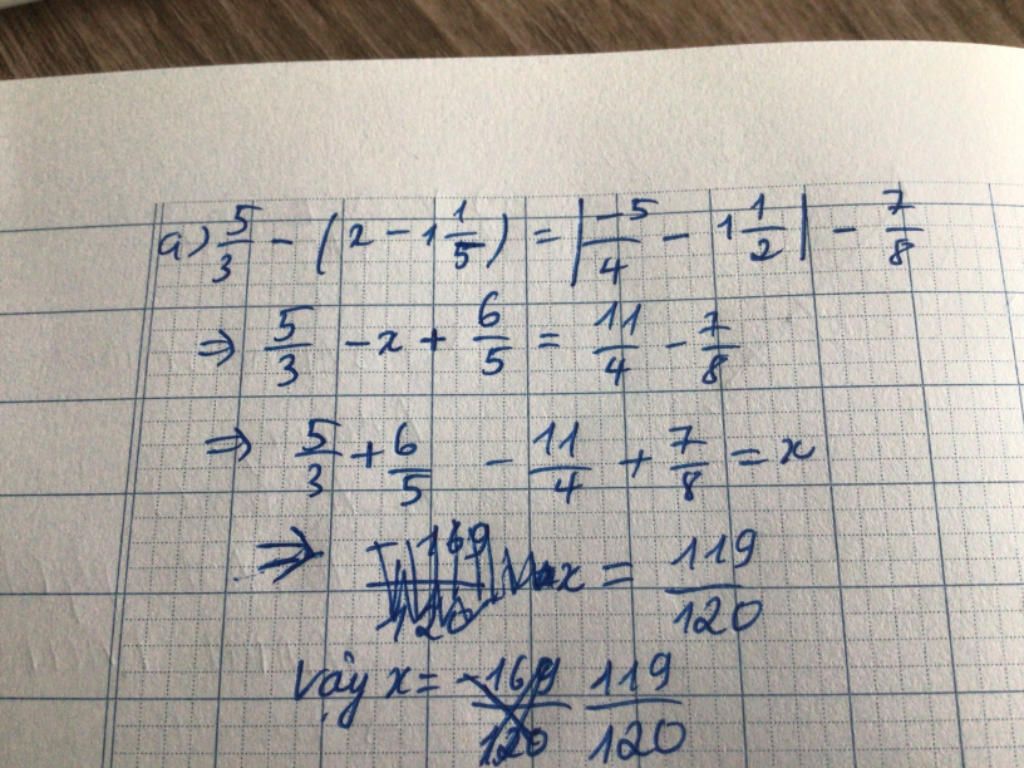 a) 5/3 - (x - 1 1/5) = |-5/4 - 1 1/2| - 7/8
⇒ 5/3 - x + 6/5 = 11/4 - 7/8
⇒ 5/3 + 6/5 - 11/4 + 7/8 = x
⇒ x = 119/120
Vậy x = 119/120